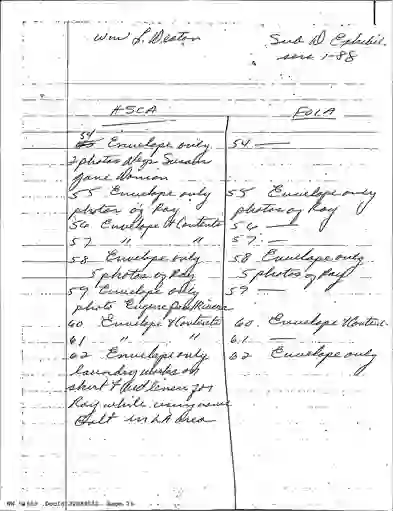 Wm L. Deaton
Sub D Exhibit
sers 1-88
HSCA
FOIA
54
Envelope only
2 photos Negs Susan
Jane
55 Envelope only
photos of Ray
56 Envelope & Contents
57 " "
58 Envelope only
5 photos of Ray
59 Envelope only
photo Eugene
60 Envelope & Contents
61 " "
62 Envelope only
laundry marks on
shirt & for
Ray while using name
Galt in LA area
54 —
55 Envelope only
photos of Ray
56 —
57 —
58 Envelope only
5 photos of Ray
59 —
60. Envelope & Content
61 —
62 Envelope only